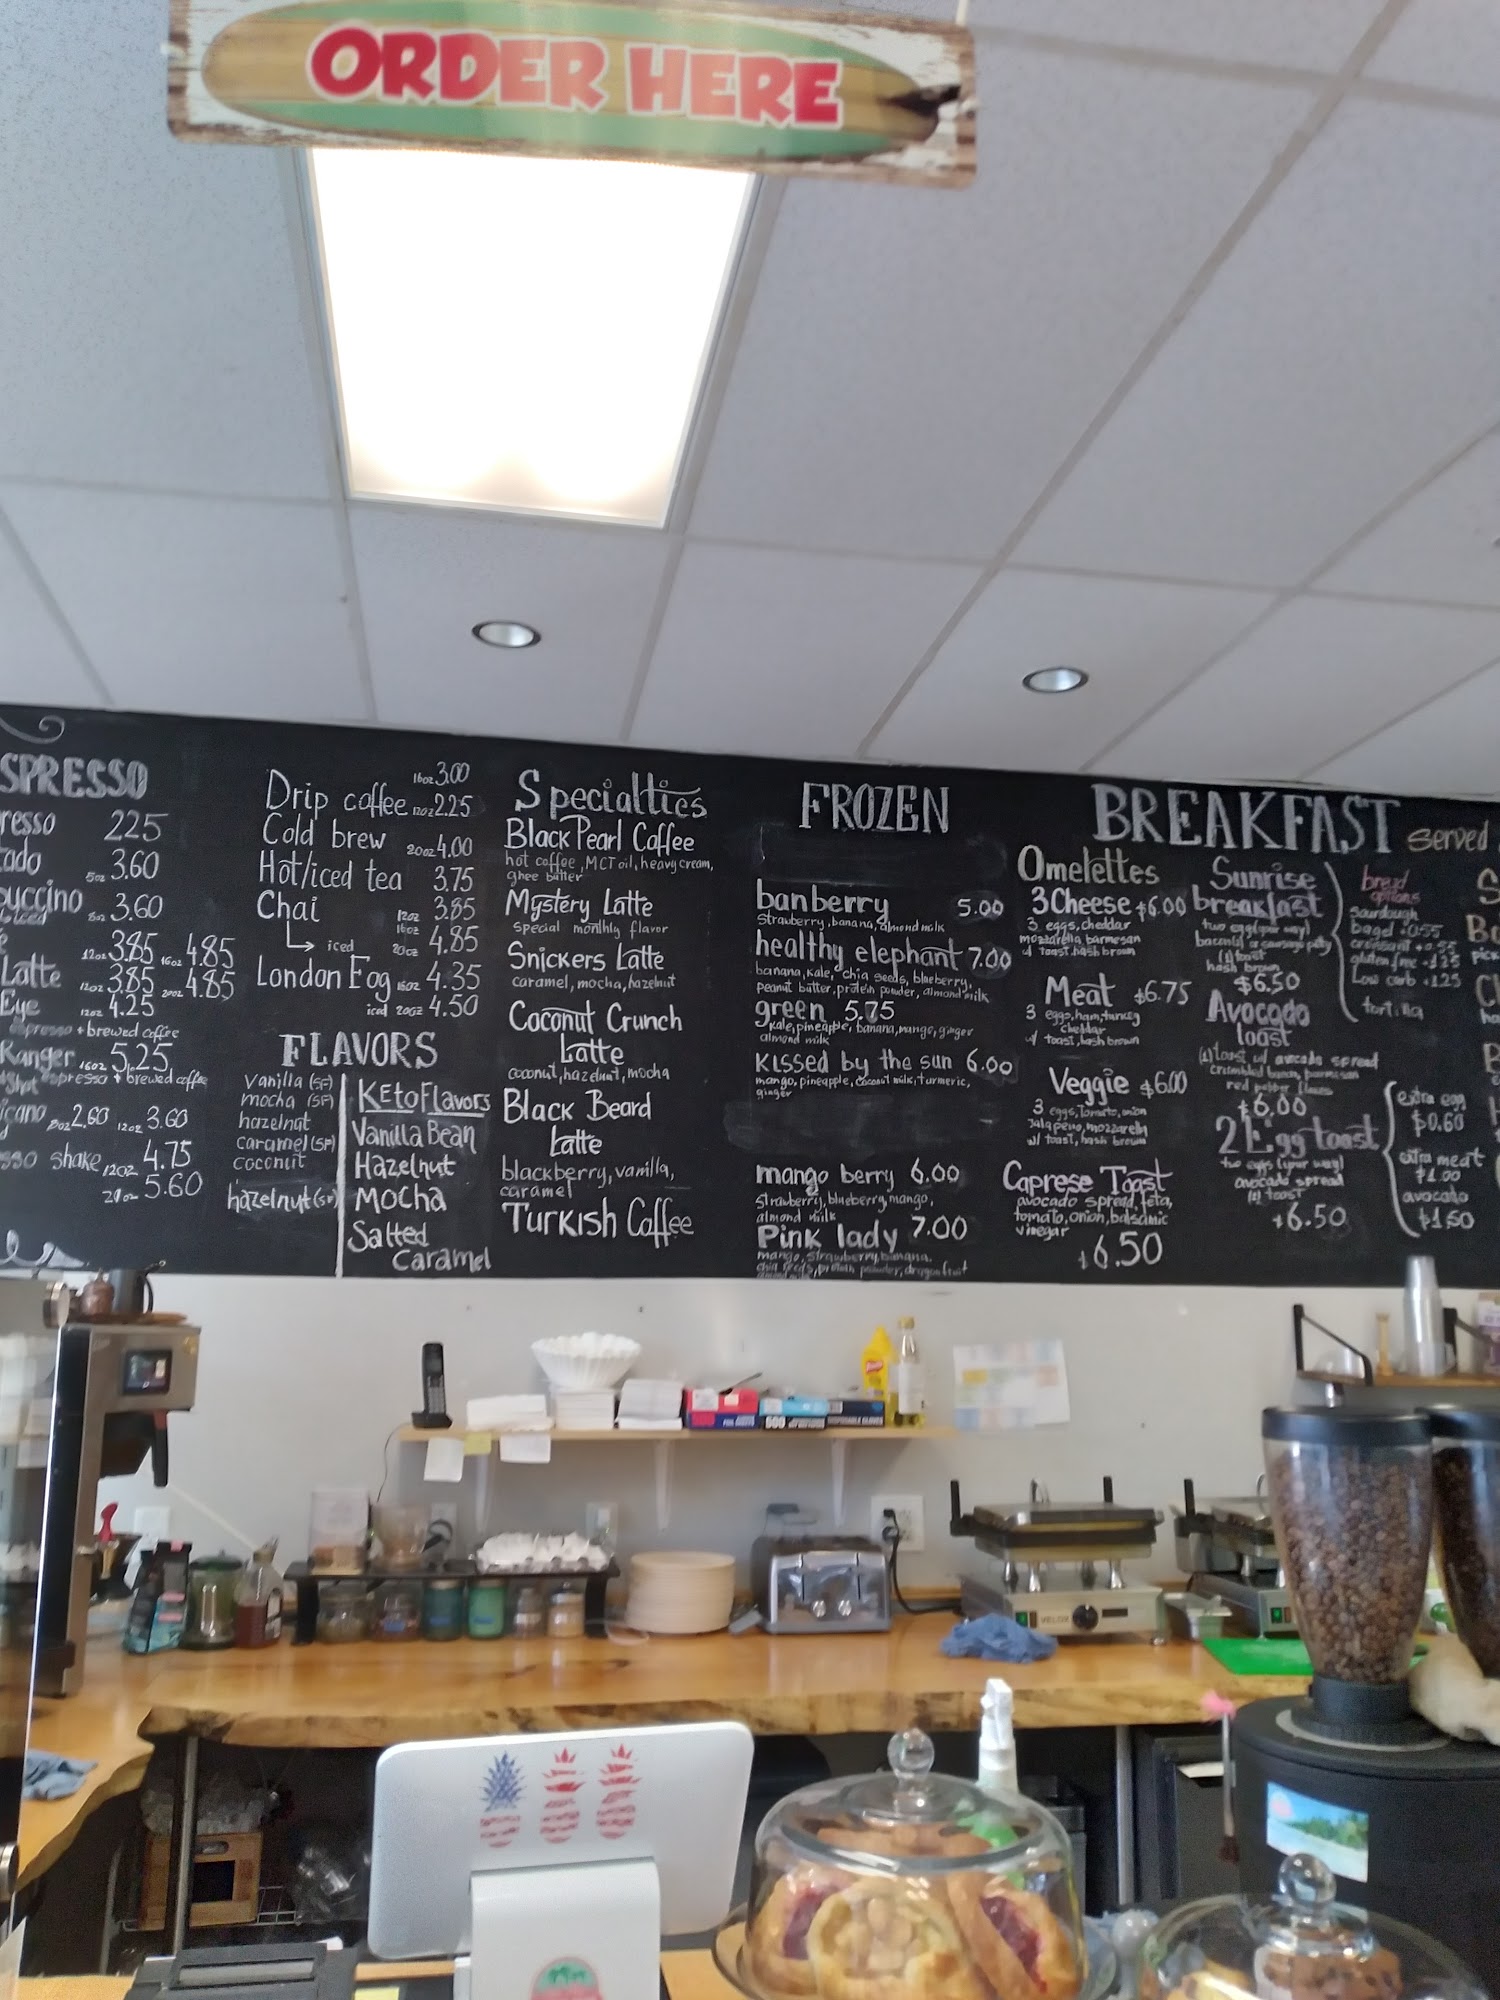 ORDER HERE
SPRESSO
resso 225
ado 5oz 3.60
puccino 8oz 3.60
12oz 3.85 16oz 4.85
Latte 12oz 3.85 20oz 4.85
Eye 12oz 4.25
espresso + brewed coffee
Ranger 16oz 5.25
shot espresso + brewed coffee
cano 8oz 2.60 12oz 3.60
sso shake 12oz 4.75
20oz 5.60
16oz 3.00
Drip coffee 12oz 2.25
Cold brew 20oz 4.00
Hot/iced tea 3.75
Chai 12oz 3.85
iced 4.85
London Fog 16oz 4.35
iced 20oz 4.50
FLAVORS
Vanilla (SF)
mocha (SF)
hazelnat
caramel (SF)
coconut
hazelnut (SF)
Keto Flavors
Vanilla Bean
Hazelnut
Mocha
Salted
Caramel
Specialties
Black Pearl Coffee
hot coffee, MCT oil, heavy cream,
ghee butter
Mystery Latte
Special monthly flavor
Snickers Latte
caramel, mocha, hazelnut
Coconut Crunch
Latte
coconut, hazelnut, mocha
Black Beard
Latte
blackberry, vanilla,
caramel
Turkish Coffee
FROZEN
banberry 5.00
Strawberry, banana, almond milk
healthy elephant 7.00
banana, kale, chia seeds, blueberry,
peanut butter, protein powder, almond milk
green 5.75
kale, pineapple, banana, mango, ginger
almond milk
kissed by the sun 6.00
mango, pineapple, coconut milk, turmeric,
ginger
mango berry 6.00
Strawberry, blueberry, mango,
almond milk
Pink lady 7.00
mango, strawberry, banana,
chia seeds, protein powder, dragonfruit
almond milk
BREAKFAST Served
Omelettes
3 Cheese $6.00
3 eggs, cheddar
mozzarella, parmesan
w/ toast, hash brown
Meat $6.75
3 eggs, ham, turkey
cheddar
w/ toast, hash brown
Veggie $6.00
3 eggs, Tomato, onion
Jalapeno, mozzarella
w/ toast, hash brown
Caprese Toast
avocado spread, feta,
tomato, onion, balsamic
vinegar
$6.50
Sunrise
breakfast
two eggs (your way)
bacon(2) or sausage patty
(1) toast
hash brown
$6.50
Avocado
Toast
(1) toast w/ avocado spread
crumbled bacon, parmesan
red pepper flakes
$6.00
2 Egg toast
two eggs (your way)
avocado spread
(1) toast
$6.50
bread
options
Sourdough
bagel +0.55
croissant +0.55
gluten free +1.25
Low carb +1.25
tortilla
extra egg
$0.60
extra meat
$1.00
avocado
$1.50
VELOX